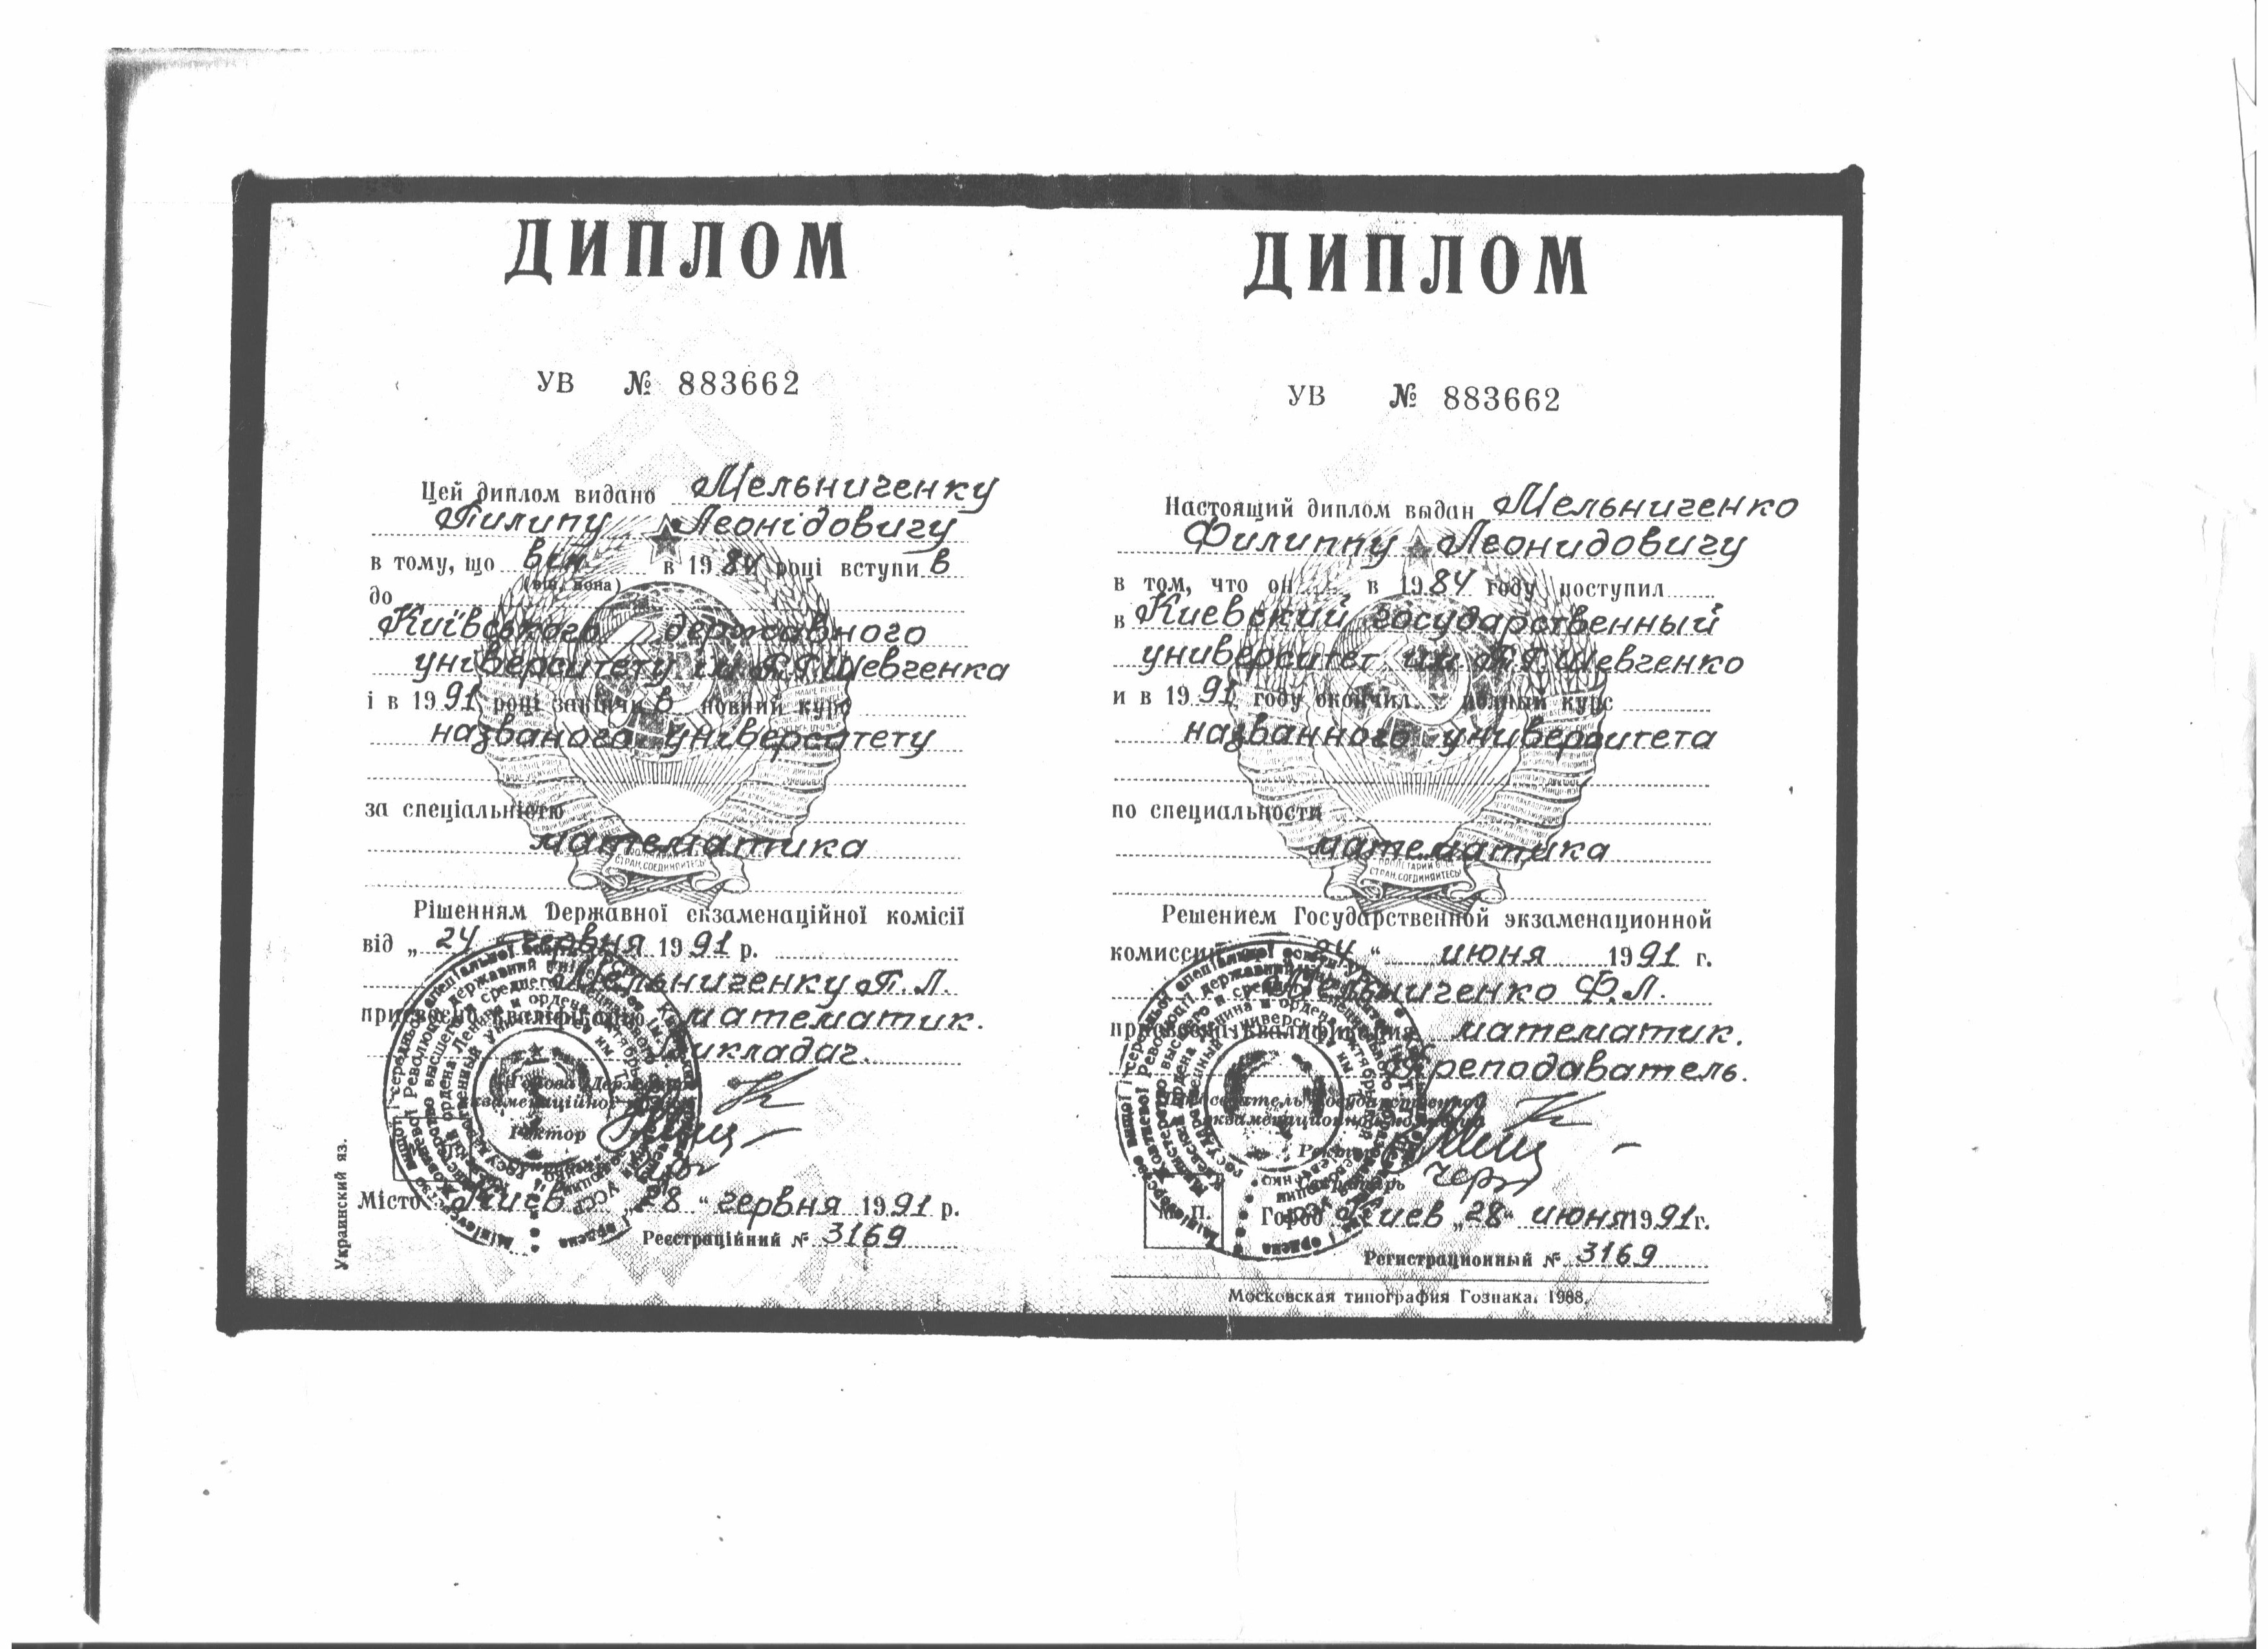 ДИПЛОМ
УВ № 883662
Цей диплом видано Мельниченку
Пилипу Леонідовичу
в тому, що він в 1984 році вступив
(він, вона)
до
Київського державного
університету ім Т.Г.Шевченка
і в 1991 році закінчив повний курс
названого університету
за спеціальністю
математика
Рішенням Державної екзаменаційної комісії
від „24 червня 1991 р.
Мельниченку П.Л.
присвоєно кваліфікацію математик.
Викладач.
Голова Державної
екзаменаційної
Ректор
Місто Киев „28“ червня 1991 р.
Реєстраційний № 3169
Украинский яз.
ДИПЛОМ
УВ № 883662
Настоящий диплом выдан Мельниченко
Филиппу Леонидовичу
в том, что он в 1984 году поступил
в Киевский государственный
университет им Т.Г.Шевченко
и в 1991 году окончил полный курс
названного университета
по специальности
математика
Решением Государственной экзаменационной
комиссии 24 “ июня 1991 г.
Мельниченко Ф.Л.
присвоена квалификация математик.
Преподаватель.
Председатель Государственной
экзаменационной комиссии
Ректор
Секретарь
М. П. Город Киев „28“ июня 1991г.
Регистрационный № 3169
Московская типография Гознака. 1988.